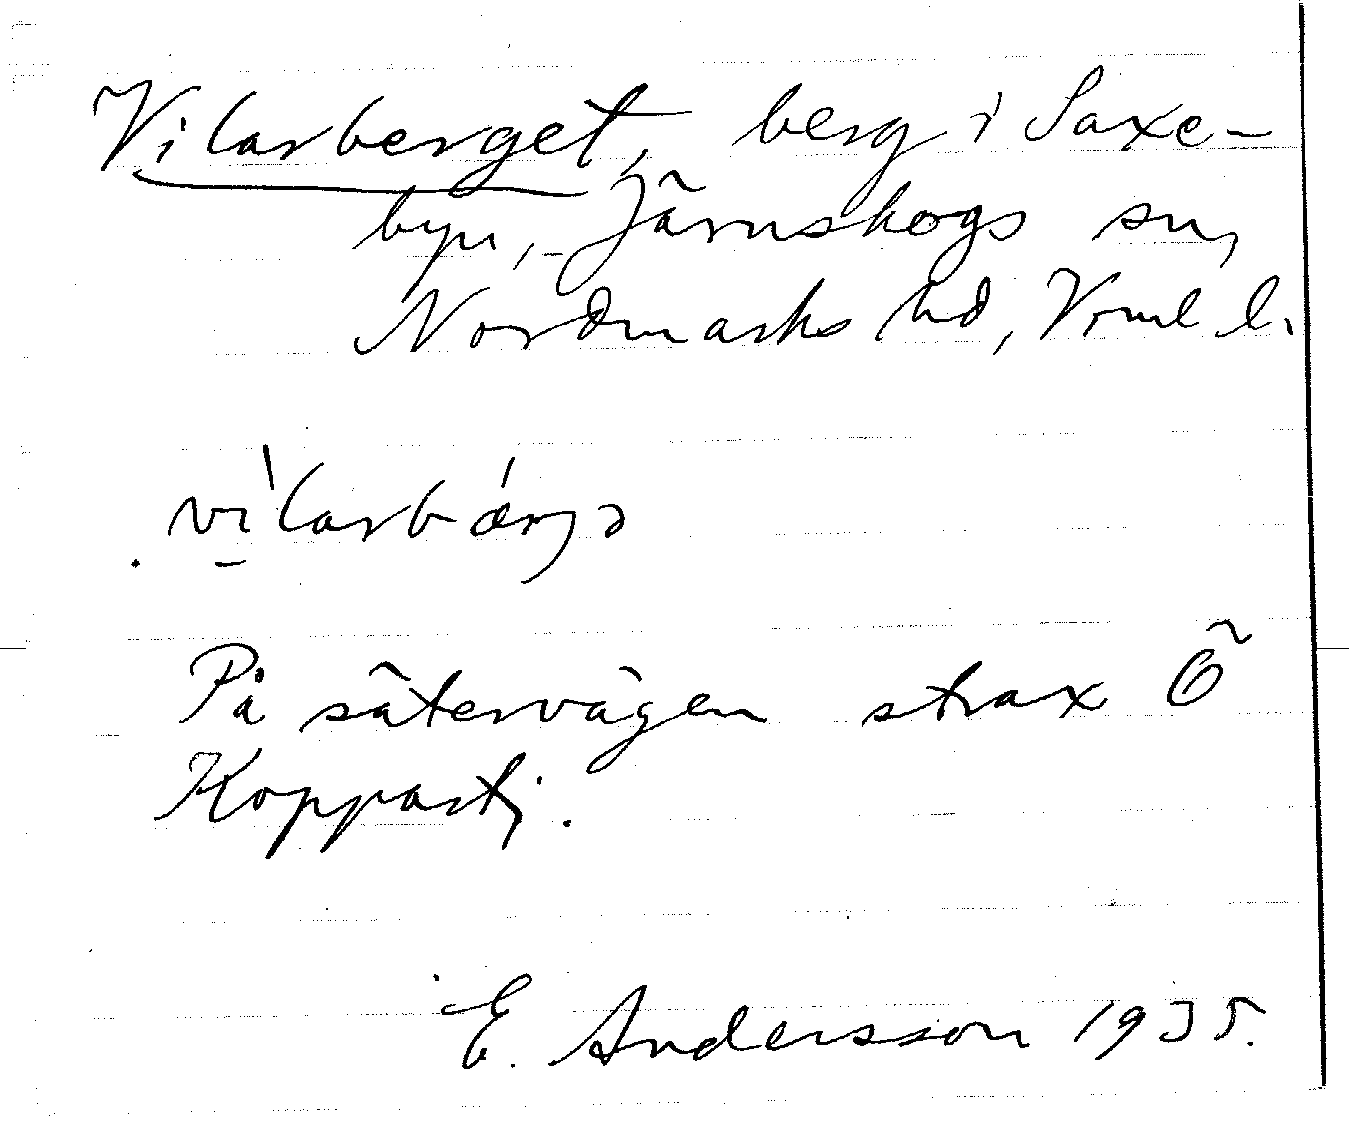 Vilarberget, berg i Saxe-
byn, Järnskogs sn,
Nordmarks hd, Vrml l.
vìlarbǽrjə
På sätervägen strax Ö
Koppartj.
E. Andersson 1935.